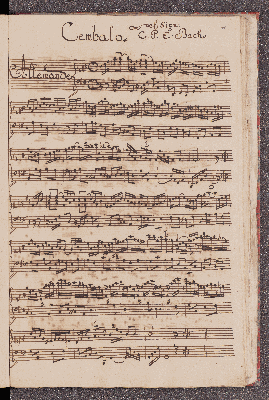 del Sigr.
Cembalo. C. P. E. Bach.
Allemande